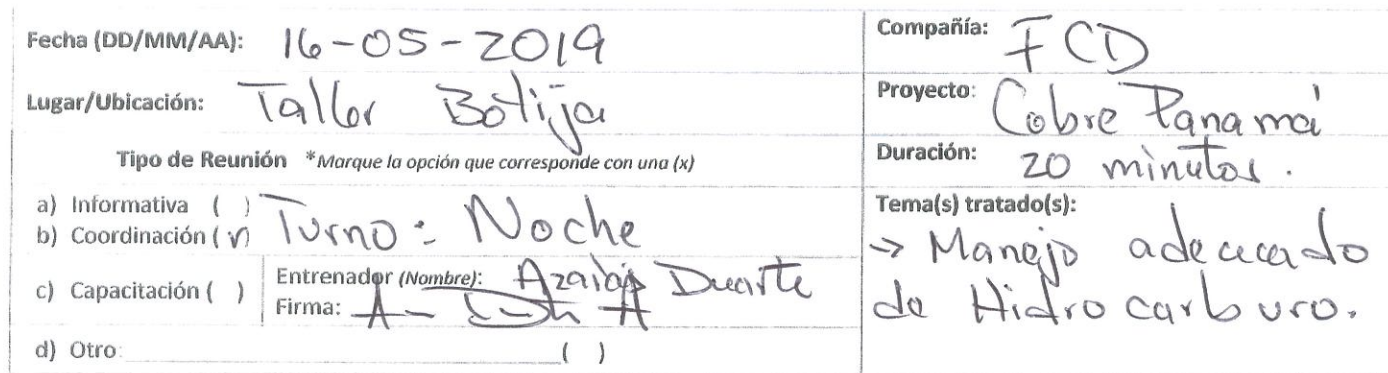 Fecha (DD/MM/AA): 16-05-2019
Lugar/Ubicación: Taller Botija
Tipo de Reunión *Marque la opción que corresponde con una (x)
a) Informativa ( )
b) Coordinación (√) Turno: Noche
c) Capacitación ( )
Entrenador (Nombre): Duarte
Firma:
d) Otro: ( )
Compañía: FCD
Proyecto: Cobre Panamá
Duración: 20 minutos.
Tema(s) tratado(s):
→ Manejo adecuado
de Hidrocarburo.